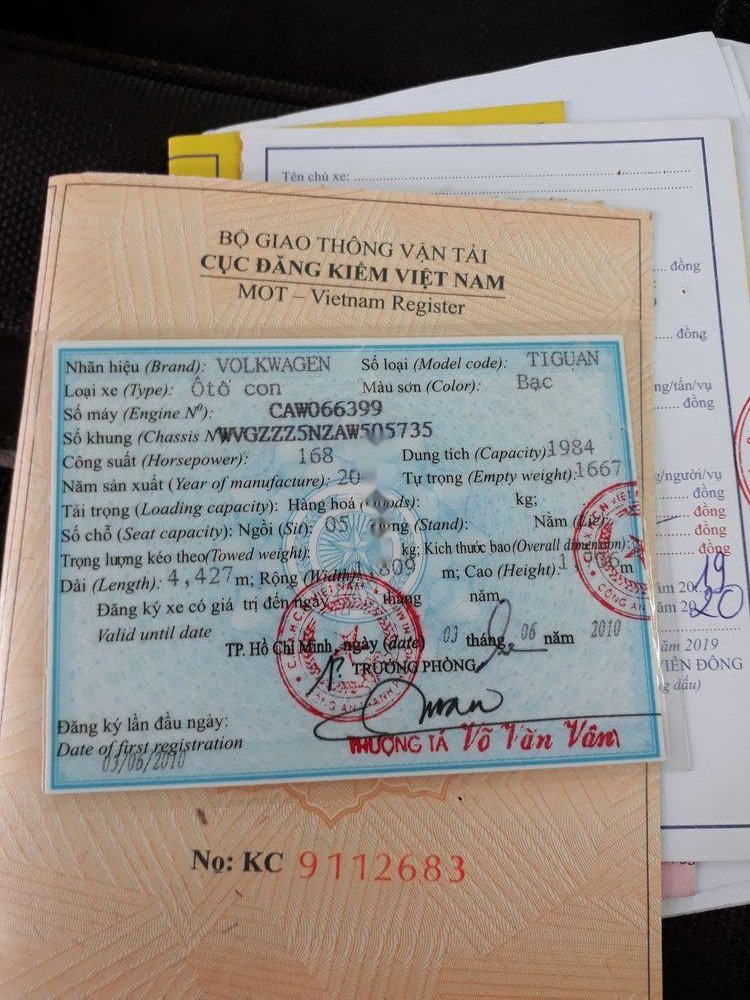 Tên chủ xe:
BỘ GIAO THÔNG VẬN TẢI
CỤC ĐĂNG KIỂM VIỆT NAM
MOT – Vietnam Register
đồng
đồng
ng/tấn/vụ
đồng
ng/người/vụ
đồng
đồng
đồng
19
20
2019
Nhãn hiệu (Brand): VOLKWAGEN Số loại (Model code): TIGUAN
Loại xe (Type): Ôtô con Màu sơn (Color): Bạc
Số máy (Engine Nº): CAW066399
Số khung (Chassis Nº WVGZZZ5NZAW505735
Công suất (Horsepower): 168 Dung tích (Capacity): 1984
Năm sản xuất (Year of manufacture): 20 Tự trọng (Empty weight): 1667
Tải trọng (Loading capacity): Hàng hoá (Goods): kg;
Số chỗ (Seat capacity): Ngồi (Sit): 05 (Stand): Nằm
Trọng lượng kéo theo(Towed weight): kg; Kích thước bao(Overall dimension):
Dài (Length): 4,427 m; Rộng (Width) 809 m; Cao (Height): 1 m
Đăng ký xe có giá trị đến ngày tháng năm
Valid until date
TP. Hồ Chí Minh, ngày (date) 03 tháng 06 năm 2010
TRƯỞNG PHÒNG
Đăng ký lần đầu ngày:
Date of first registration
03/06/2010
THƯỢNG TÁ Võ Văn Vân
No: KC 9112683